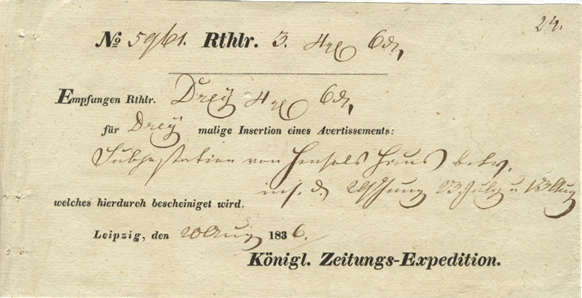 24.
No 5961. Rthlr. 3. 4 gl 6 d,
Empfangen Rthlr. Drey 4 gl 6 d,
für Drey malige Insertion eines Avertissements:
Subhastation von Hensels Haus betr.
23. July u. 13 Aug
welches hierdurch bescheiniget wird.
Leipzig, den 20 Aug 1836.
Königl. Zeitungs-Expedition.